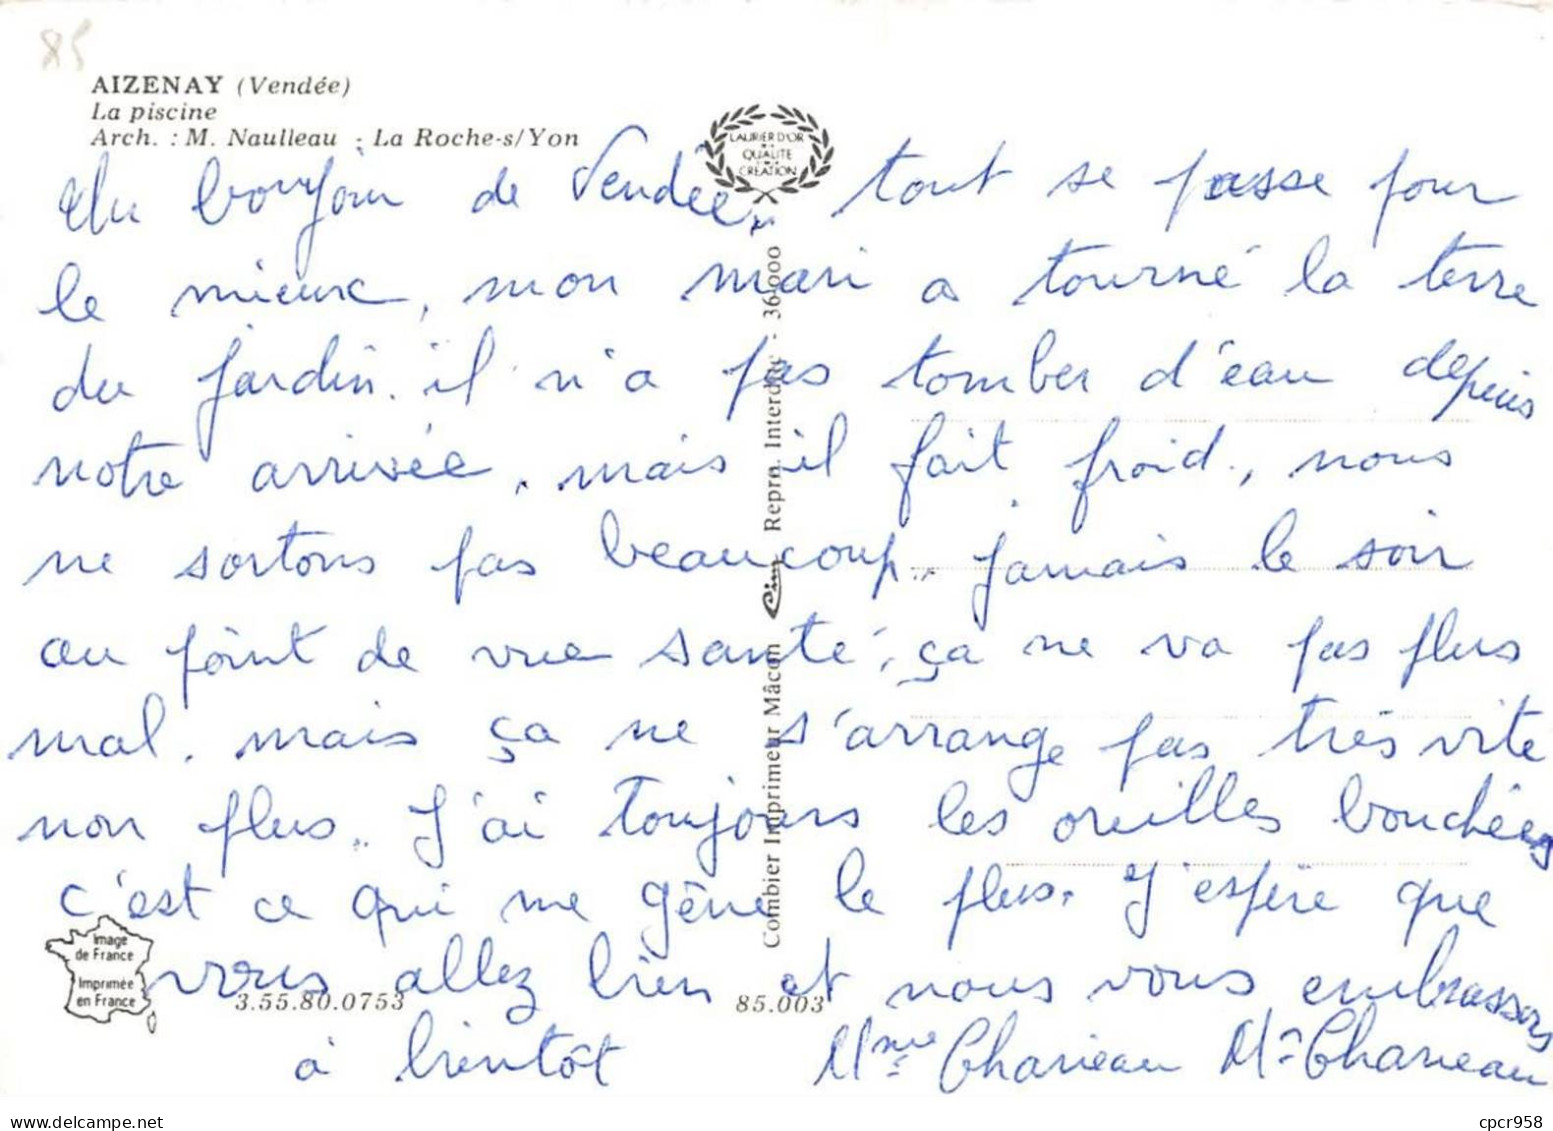 85
AIZENAY (Vendée)
La piscine
Arch. : M. Naulleau - La Roche-s/Yon
LAURIER D'OR
QUALITE
CREATION
Un bonjour de Vendée, tout se passe pour
le mieux, mon mari a tourné la terre
du jardin. il n'a pas tomber d'eau depuis
notre arrivée, mais il fait froid, nous
ne sortons pas beaucoup, jamais le soir
au point de vue santé, ça ne va pas plus
mal, mais ça ne s'arrange pas très vite
non plus. J'ai toujours les oreilles bouchées
c'est ce qui me gêne le plus. J'espère que
vous allez bien et nous vous embrassons
à bientôt Mme Charieau Mr Charieau
Combier Imprimeur Mâcon Repro. Interdite - 36.000
Cim
Image
de France
Imprimée
en France
3.55.80.0753
85.003
delcampe.net
cpcr958